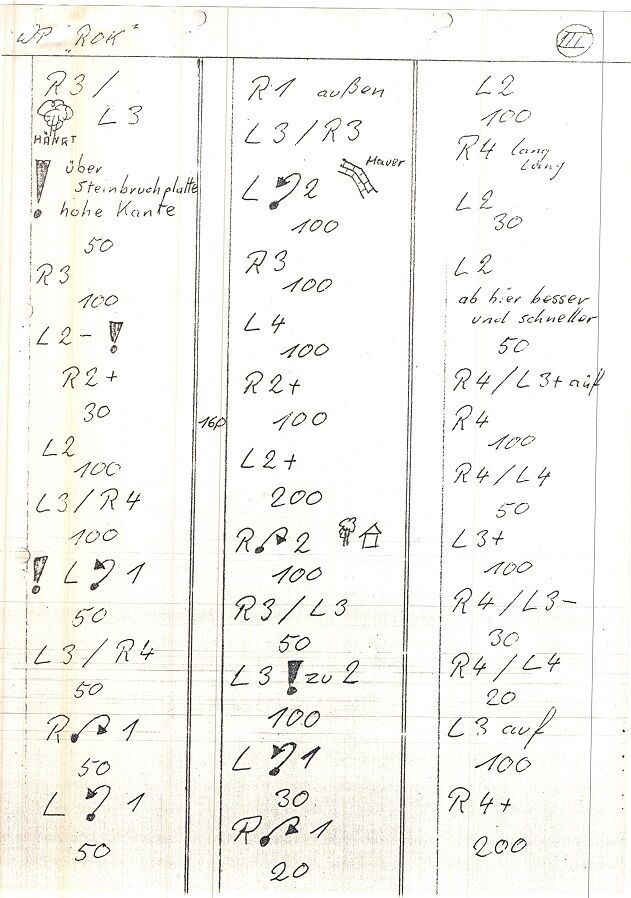 WP "ROK"
III
R3/
L3
HÄNGT
! über
Steinbruchplatte
hohe Kante
50
R3
100
L2- !
R2+
30
L2
100
L3/R4
100
! L 1
50
L3/R4
50
R 1
50
L 1
50
160
R1 außen
L3/R3
L 2
Mauer
100
R3
100
L4
100
R2+
100
L2+
200
R 2
100
R3/L3
50
L3 ! zu 2
100
L 1
30
R 1
20
L2
100
R4 lang
lang
L2
30
L2
ab hier besser
und schneller
50
R4/L3+ auf
R4
100
R4/L4
50
L3+
100
R4/L3-
30
R4/L4
20
L3 auf
100
R4+
200